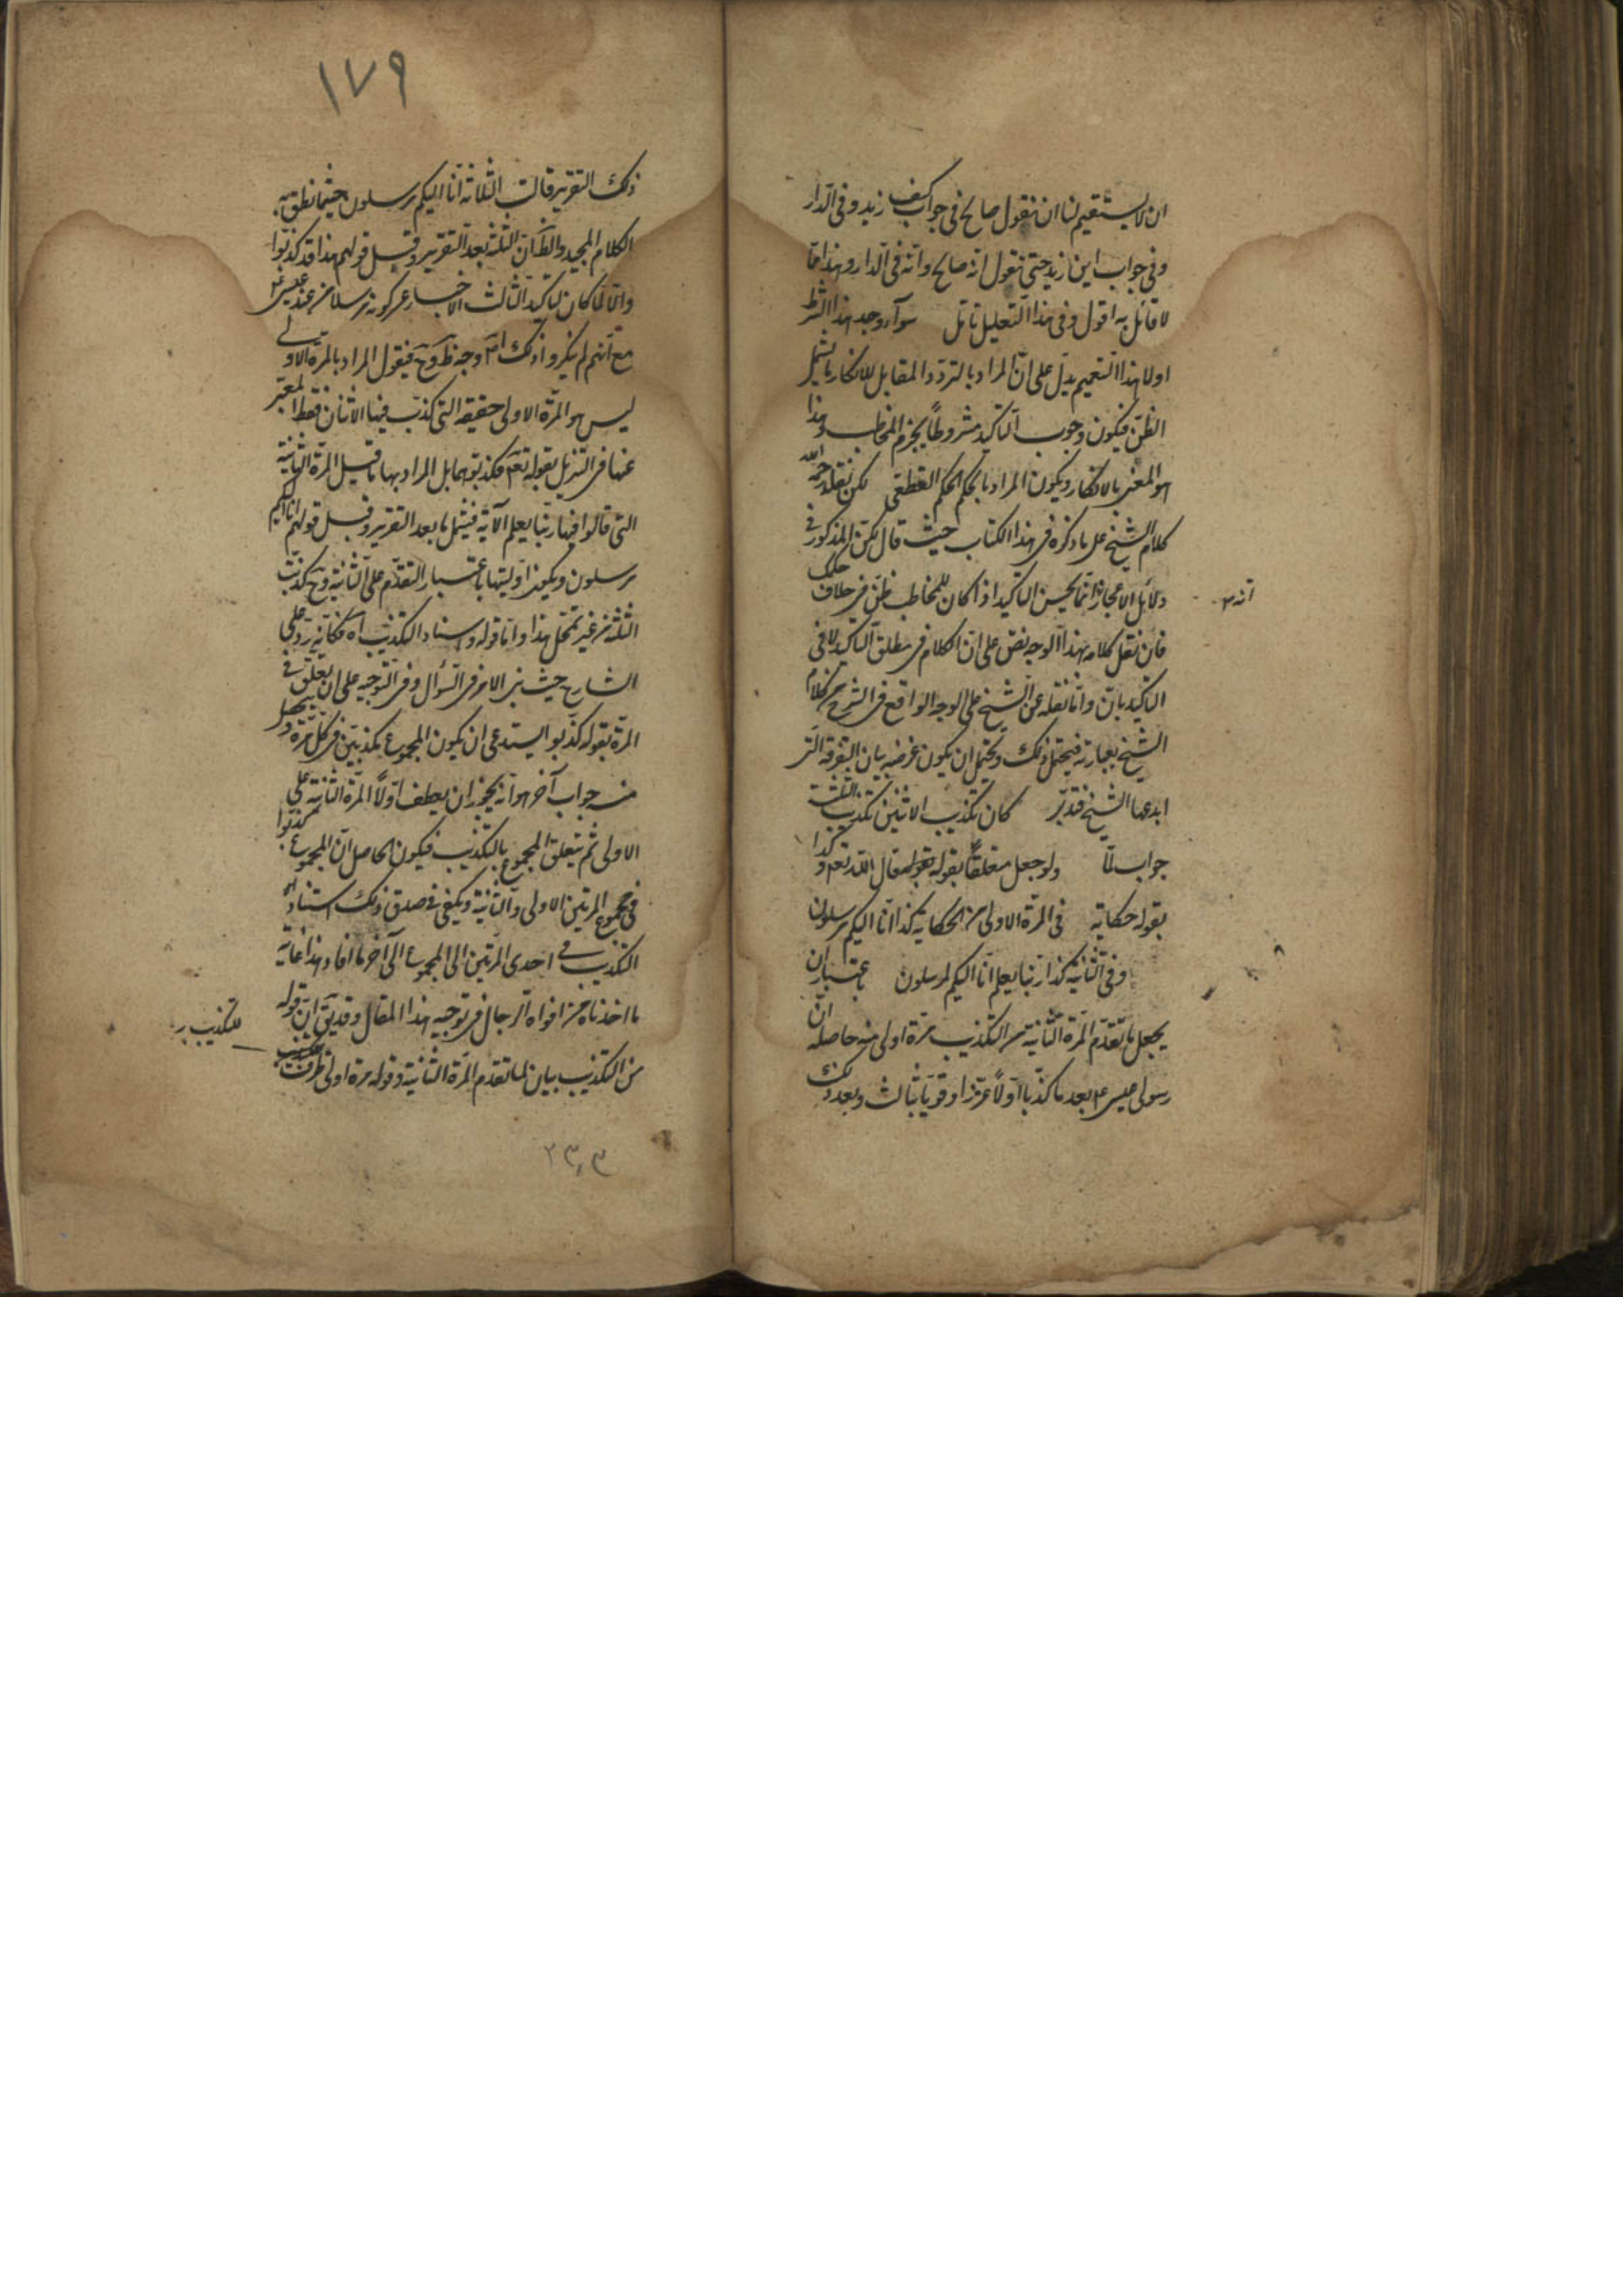 ان لا يستقيم لنا ان نقول صالح فى جواب كيف زيد وفى الدار
وفى جواب اين زيد حتى نقول انه صالح وانه فى الدار وهذا مما
لا قائل به اقول وفى هذا التعليل تامل سوآء وجد هذا الشرط
اولا هذا التعميم يدل على ان المراد بالتردد المقابل للانكار ما يشمل
الظن فيكون وجوب التاكيد مشروطاً بجزم المخاطب وهذا
هو المعنى بالانكار ويكون المراد بالحكم الحكم القطعى لكن نقله رحمه الله
كلام الشيخ على ما ذكره فى هذا الكتاب حيث قال لكن المذكور فى
دلائل الاعجاز انما يحسن التاكيد اذا كان للمخاطب ظن فى خلاف حكمك
انه
فان نقل كلامه بهذا الوجه نص على ان الكلام فى مطلق التاكيد لا فى
التاكيد بان واما نقله عن الشيخ على الوجه الواقع فى الشرح من كلام
الشيخ بعبارته فيحتمل ذلك ويحتمل ان يكون غرضه بيان التفرقة التى
ابدعها الشيخ فتدبر كان تكذيب الاثنين تكذيب الثلثة
جواب لما ولو جعل متعلقاً بقوله فقال الله تعم وكذا
بقوله حكاية فى المرة الاولى من الحكاية كذا انا اليكم مرسلون
وفى الثانية كذا ربنا يعلم انا اليكم لمرسلون باعتبار ان
يجعل ما تقدم المرة الثانية من التكذيب مرة اولى منه حاصله ان
رسولى عيسى ع بعد ما كذبا اولاً عززا وقويا بثالث وبعد ذلك
١٧٩
ذلك التقرير قالت الثلاثة انا اليكم مرسلون حيثما نطق به
الكلام المجيد والظ ان الثلثة بعد التقرير وقبل قولهم هذا قد كذبوا
والا لما كان لتاكيد الثالث الاخبار عن كونه مرسلا من عند عيسى ع
مع انهم لم ينكروا ذلك وجه ظ وح فيقول المراد بالمرة الاولى
ليس هو المرة الاولى حقيقة التى كذب فيها الاثنان فقط المعبر
عنها فى التنزيل بقوله تعم فكذبوهما بل المراد بها ما قبل المرة الثانية
التى قالوا فيها ربنا يعلم الآية فيشمل ما بعد التقرير وقبل قولهم انا اليكم
مرسلون ويكون اوليتها باعتبار التقدم على الثانية وح كذبت
الثلثة من غير تمحل هذا واما قوله واسناد التكذيب اه فكانه رد على
الشارح حيث بنى الامر فى السؤال وفى التوجيه على ان تعلق فى
المرة بقوله كذبوا يستدعى ان يكون المجموع مكذبين فى كل مرة ويحصل
منه جواب آخر هو انه يجوز ان يعطف اولاً المرة الثانية على
الاولى ثم يتعلق المجموع بالتكذيب فيكون الحاصل ان المجموع كذبوا
فى مجموع المرتين الاولى والثانية ويكفى فى صدق ذلك استناد
التكذيب فى احدى المرتين الى المجموع الى آخر ما افاد هذا غاية
ما اخذناه من افواه الرجال فى توجيه هذا المقال وقد يق ان قوله
للتكذيب
من التكذيب بيان لما تقدم المرة الثانية وقوله مرة اولى ظرف
٢٣٣